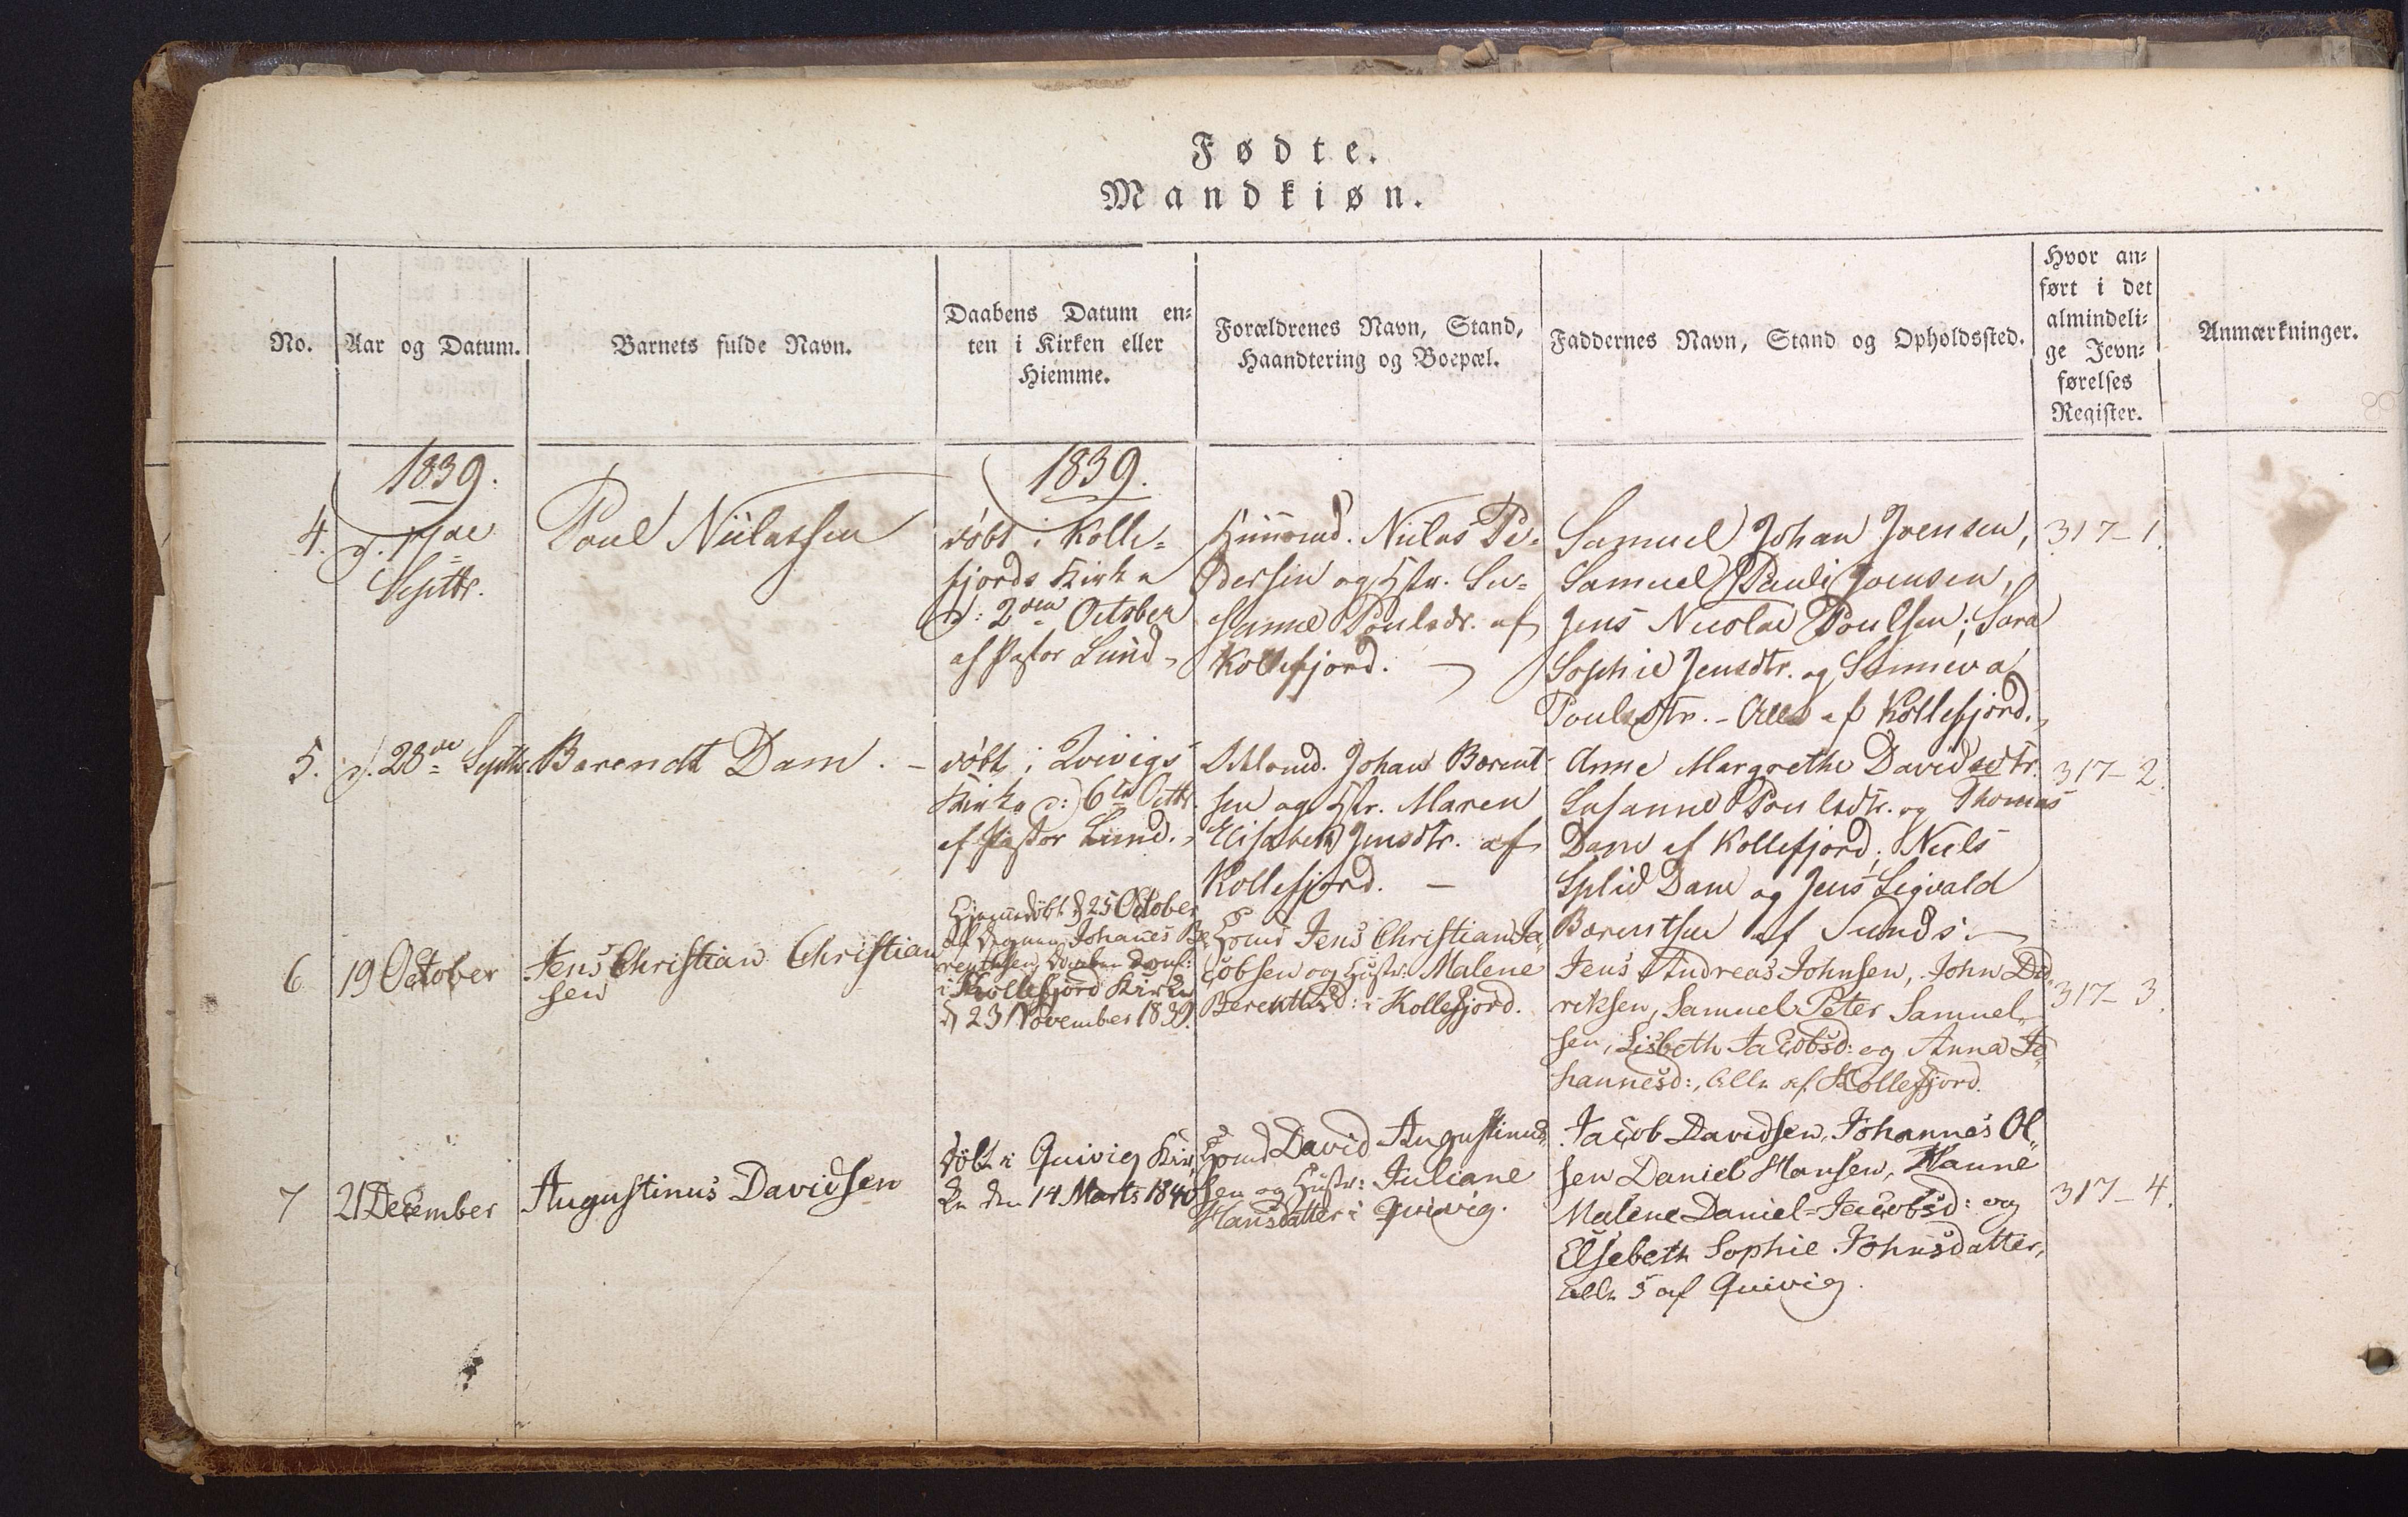 Fødte.
Mandkiøn.
No.
Aar og Datum.
Barnets fulde Navn.
Daabens Datum en=
ten i Kirken eller
Hiemme.
Forældrenes Navn, Stand,
Haandtering og Boepæl.
Faddernes Navn, Stand og Opholdssted.
Hvor an=
ført i det
almindeli=
ge Jevn=
førelses
Register.
Anmærkninger.
1839.
4.
Septbr.
Poul Niclassen
1839.
døbt i Kolle=
fjords Kirke
d: 2den October
af Pastor Lund
Niclas Pe=
dersen og Hstr. Su=
sanne Poulsdr. af
Kollefjord.
Samuel Johan Joensen,
Samuel Pauli Joensen,
Jens Nicolai Poulsen; Sara
Sophie Jensdtr. og Sunneva
Poulsdtr. - Alle af Kollefjord.
317-1.
5.
d. 28de Septbr.
Barendt Dam. -
døbt i Qvivigs
Kirke d: 6te Octbr.
af Pastor Lund.
Johan Barent-
sen og Hstr. Maren
Elisabeth Jensdtr. af
Kollefjord. -
Anne Margrethe Davidsdtr.
Susanne Poulsdtr. og Thomas
Dam af Kollefjord; Niels
Splid Dam og Jens Sigvald
Barentsen af Sund:
317-2.
6
19 October
Jens Christian Christian
sen
Hjemmedøbt d 25 October
af Degnen Johanes Be
rentsen, Daaben
i Kollefjord Kirke
d 23 November 1839.
Jens Christian Ja=
cobsen og Hustr: Malene
Berentsd: i Kollefjord.
Jens Andreas Johnsen, John Did=
riksen, Samuel Peter Samuel=
sen, Lisbeth Jacobsd: og Anna Jo=
hannesd:, alle af Kollefjord.
317-3.
7
21 December
Augustinus Davidsen
døbt i Quivig Kir=
ke den 14 Marts 1840
David Augustinus=
sen og Hustr: Juliane
Hansdatter i Qvivig.
Jacob Davidsen, Johannes Ol=
sen Daniel Hansen, Hanne
Malene Daniel=Jacobsd: og
Elsebeth Sophie Johnsdatter,
alle 5 af Quivig.
317-4.